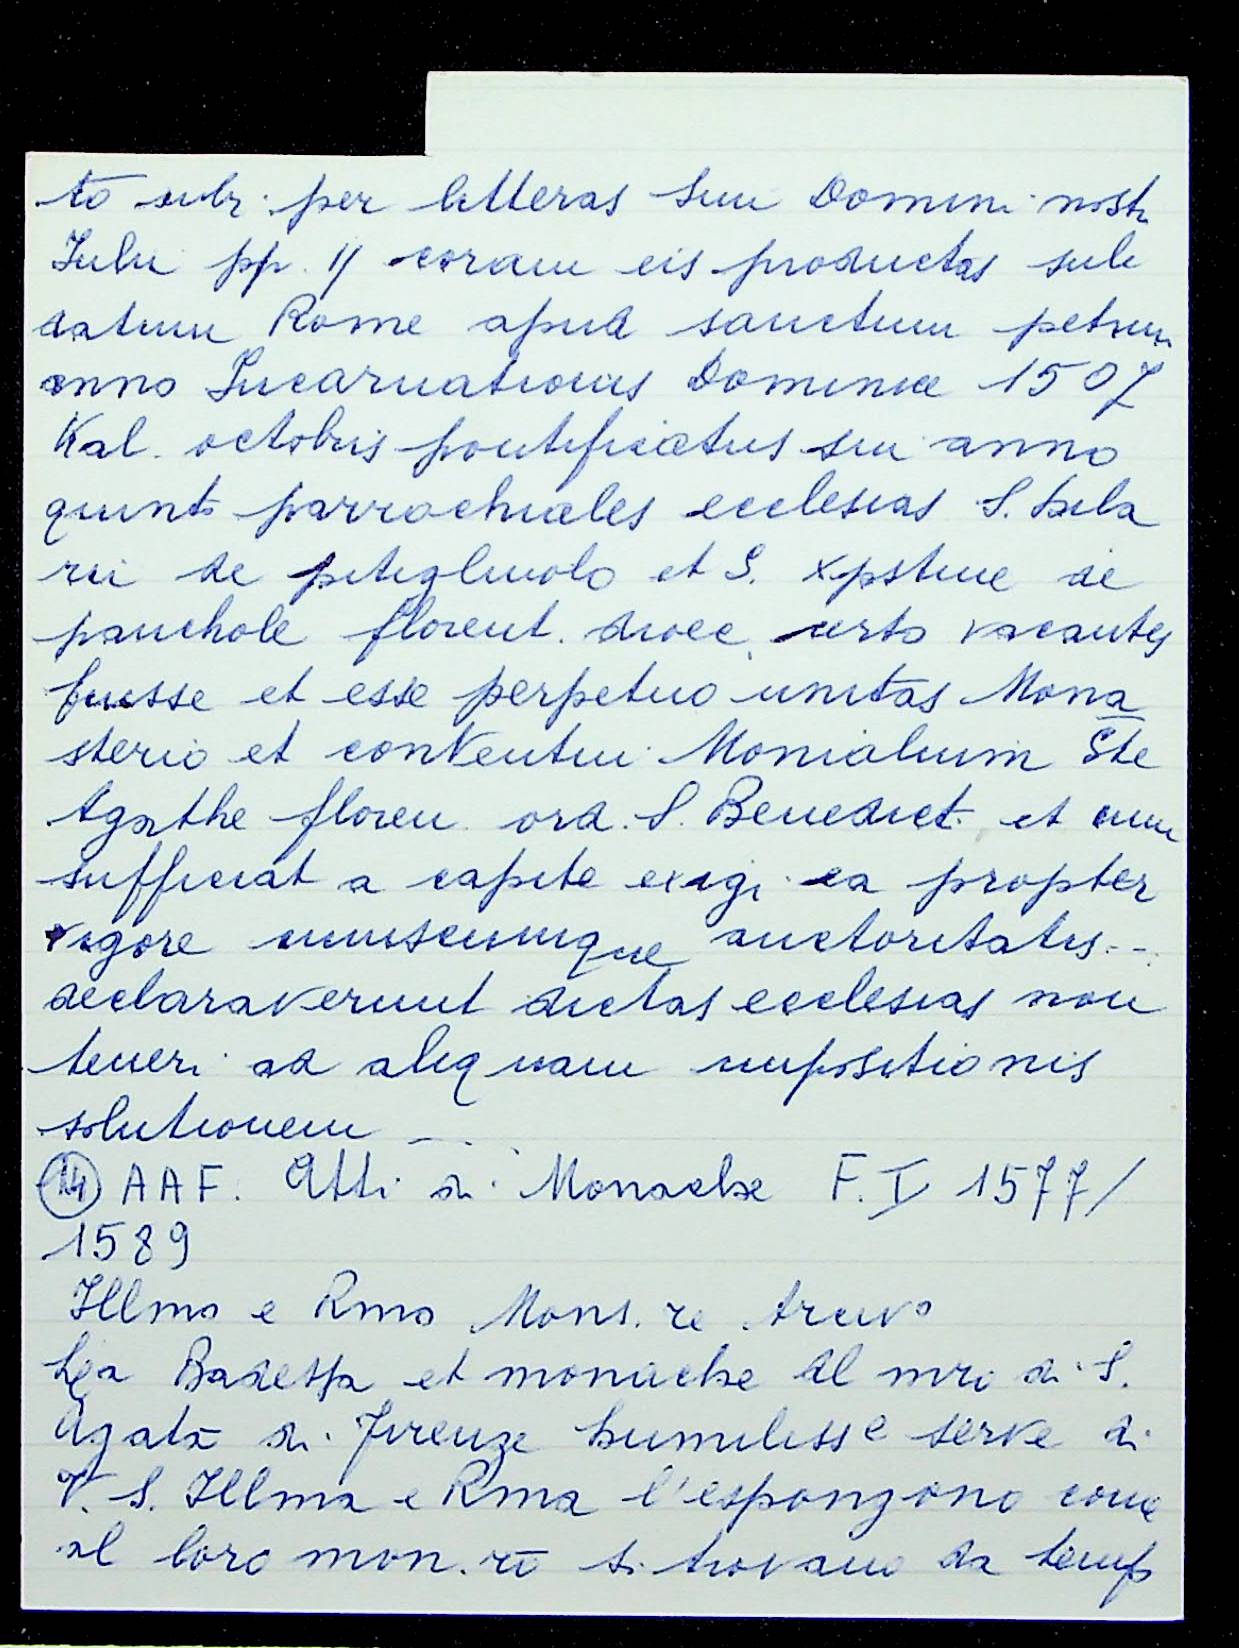 to subr. per litteras Smi Domini nostri
Iulii pp. ij coram eis productas sub
datum Rome apud sanctum petrum
anno Incarnationis Dominice 1507
Kal. octobris pontificatus sui anno
quinto parrochiales ecclesias S. hila
rii de pitigluolo et S. xpstine de
panchole florent. dioec. certo vacantes
fuisse et esse perpetuo unitas Mona
sterio et conventui Monialium Ste
Agathe floren ord. S. Benedict. et cum
sufficiat a capite exigi ea propter
vigore cuiuscumque auctoritatis...
declaraverunt dictas ecclesias non
teneri ad aliquam impositionis
solutionem ...
(14) AAF. Atti di Monache F. I 1577/
1589
Illmo e Rmo Mons.re Arcivo
La Badessa et monache del mro di S.
Agata di Firenze humilisse serve di
V. S. Illma e Rma l'espongono come
al loro mon.ro si trovano da temp